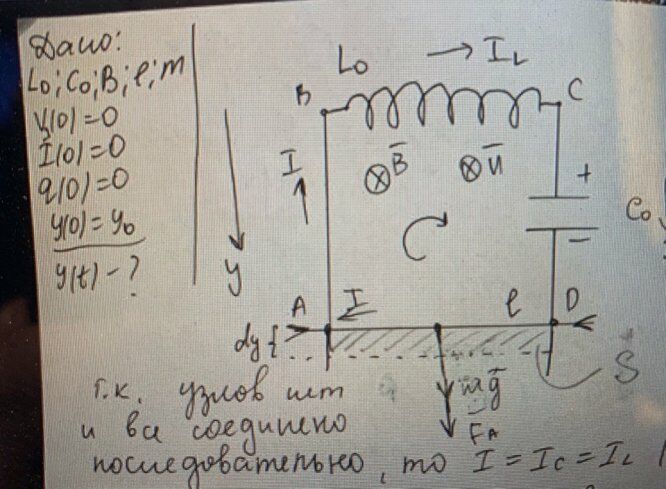 Дано:
L₀; C₀; B; l; m
V(0)=0
I(0)=0
q(0)=0
y(0)=y₀
y(t)-?
L₀ → I_L
B
C
I
B̄
n̄
+
−
C₀
y
A
I
l
D
dy {
S̄
mḡ
F_A
т.к. узлов нет
и все соединено
последовательно, то I = I_C = I_L